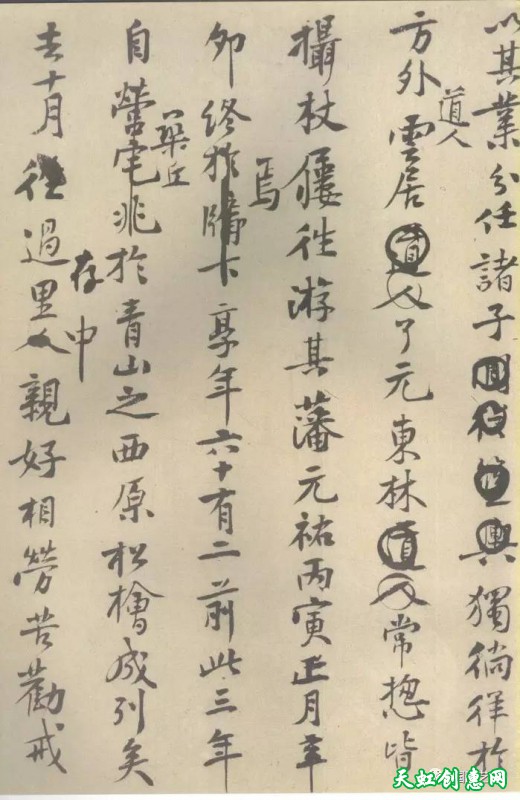 以其業分任諸子獨徜徉於
道人
方外雲居道人了元東林道人常揔皆
攝杖屨往游其藩元祐丙寅正月辛
焉
卯終於牖下享年六十有二前此三年
丘
自營宅兆於青山之西原松檜成列矣
存中
去十月往過里人親好相勞苦勸戒
天虹创意网